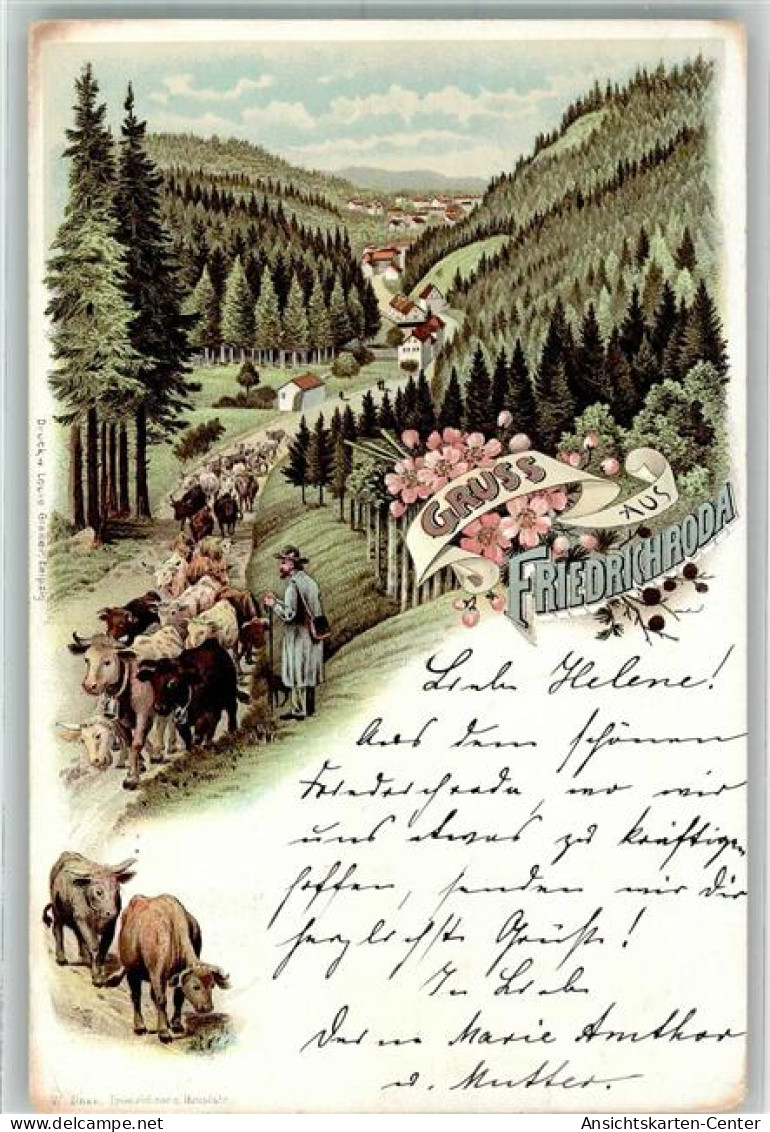 GRUSS AUS
FRIEDRICHRODA
Druck v. Louis Glaser, Leipzig
Liebe Helene!
Aus dem schönen
Friedrichroda, wo wir
uns etwas zu kräftigen
hoffen, senden wir Dir
herzlichste Grüße!
In Liebe
Deine Marie Amthor
u. Mutter.
Ansichtskarten-Center